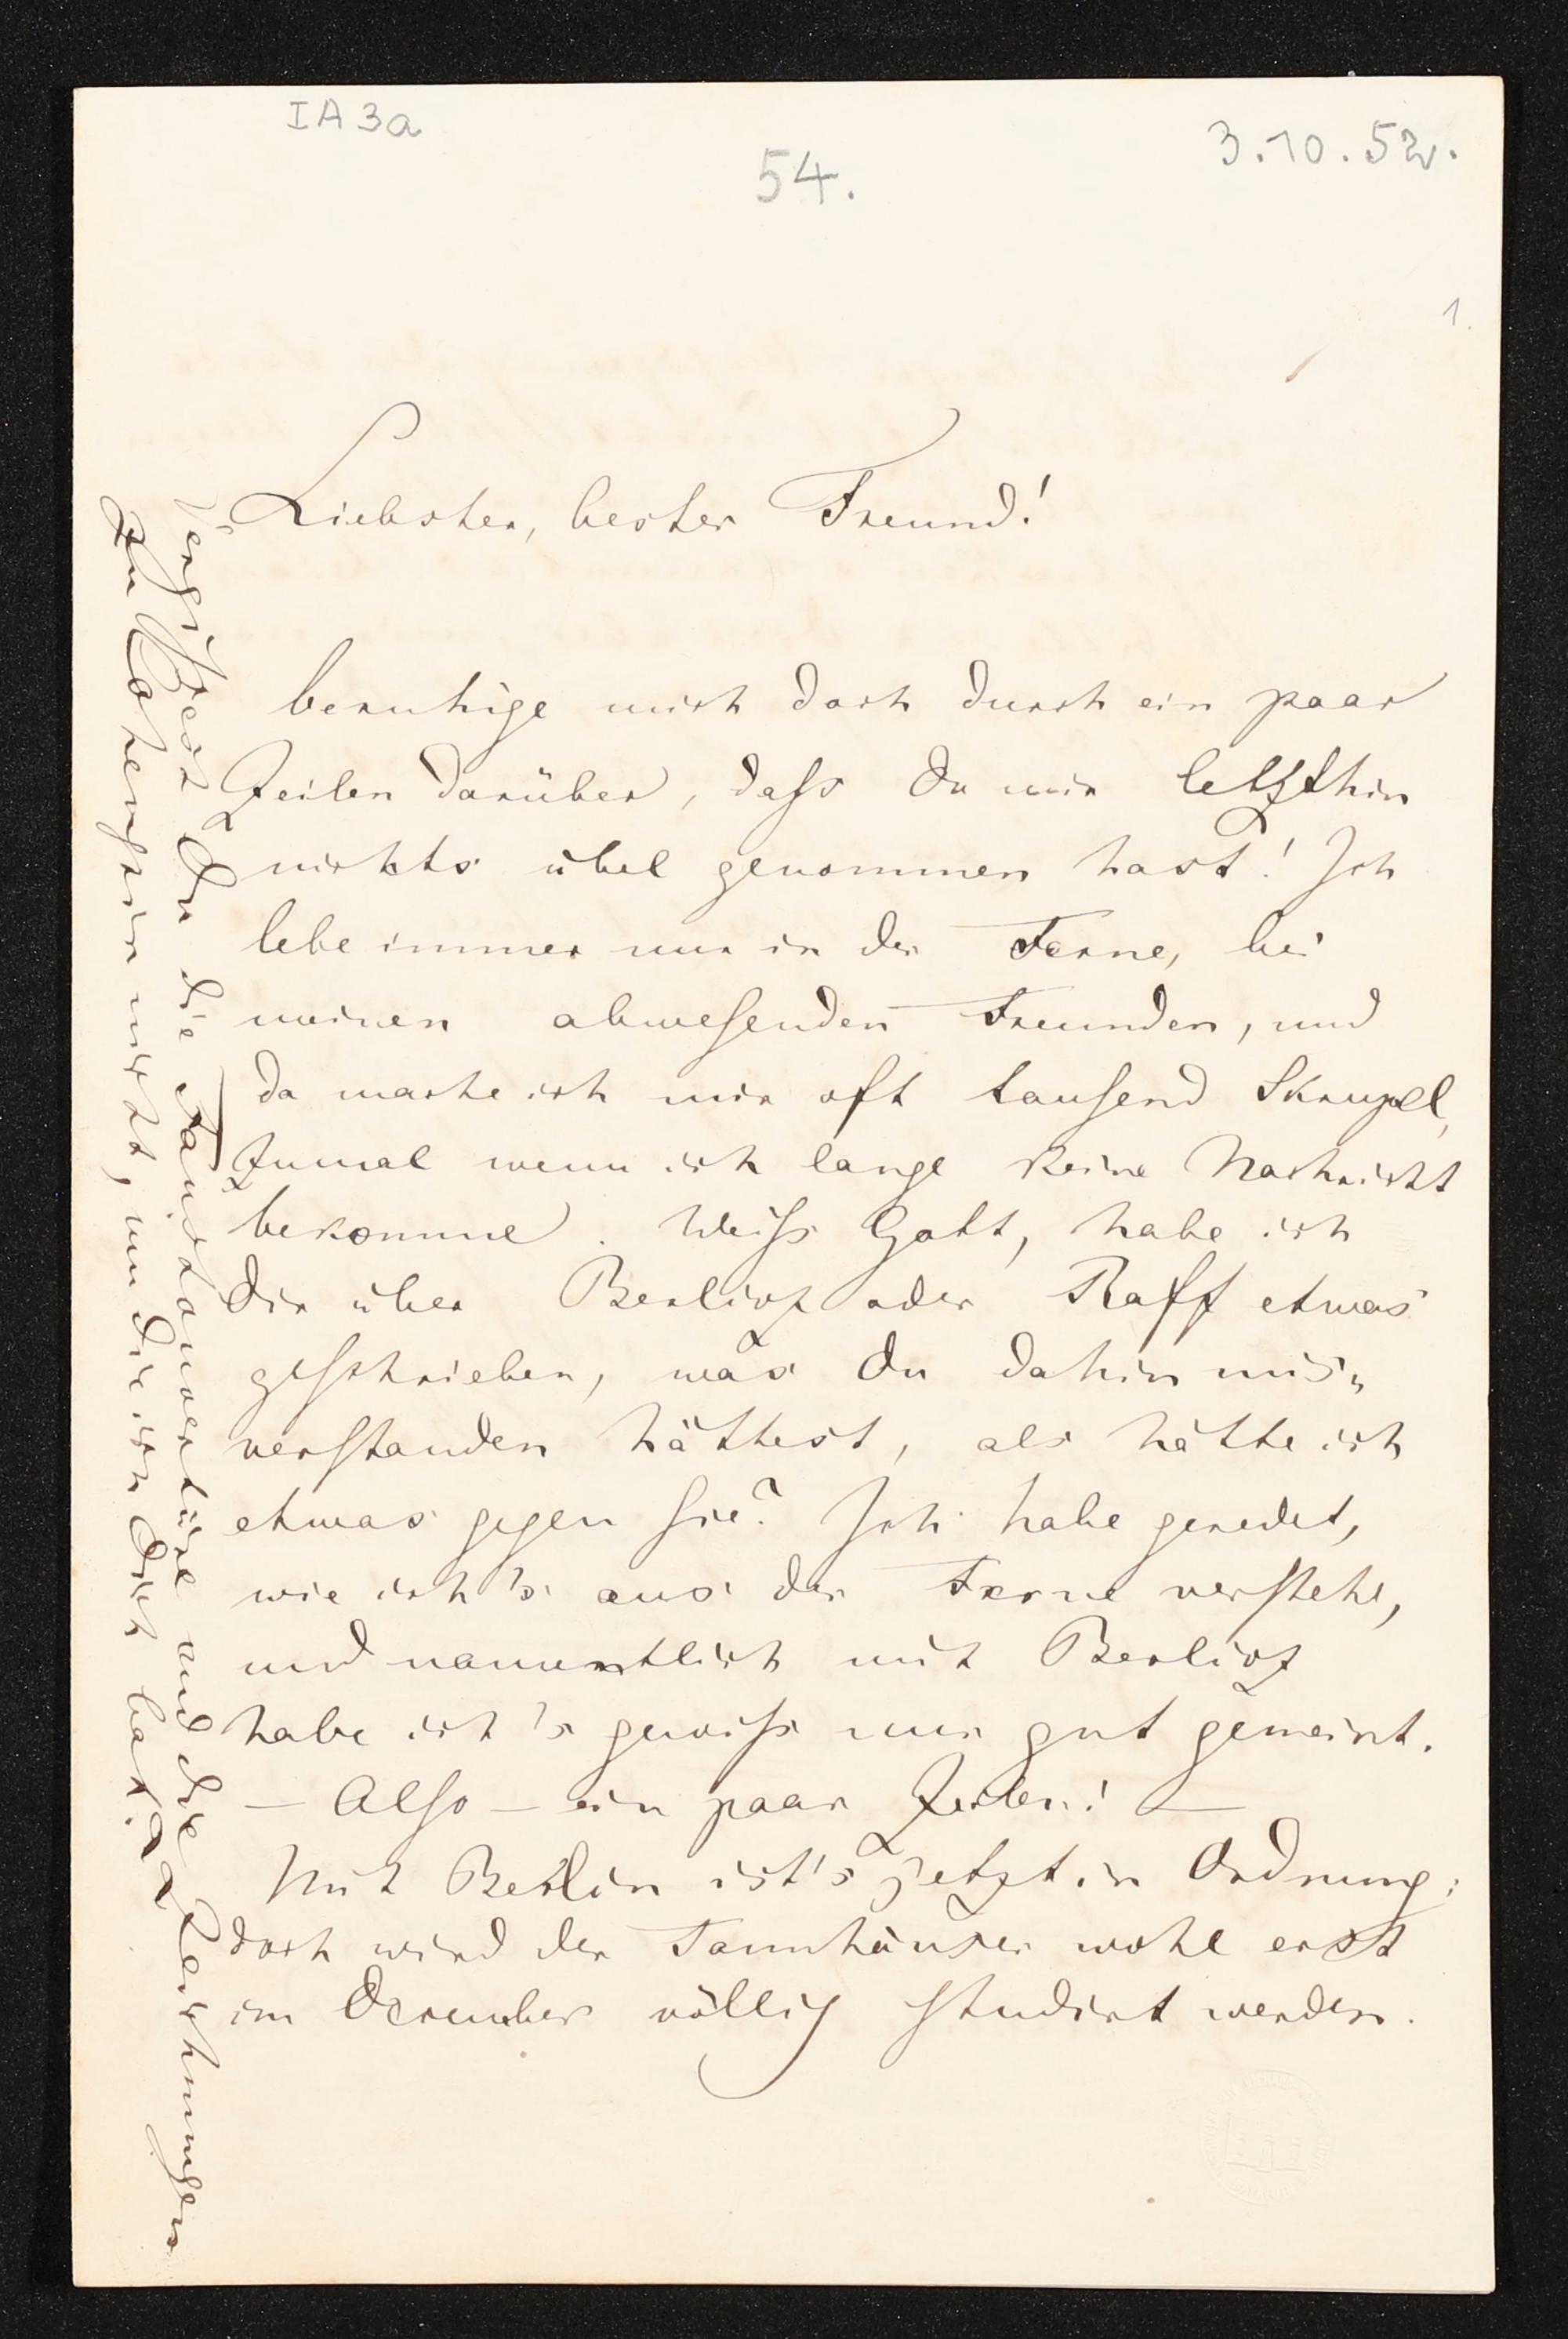 IA3a
54.
3.10.52.
1.
Liebster, bester Freund!
beruhige mich doch durch ein paar
Zeilen darüber, daſs Du mir letzthin
nichts übel genommen hast! Ich
lebe immer nur in der Ferne, bei
meinen abweſenden Freunden, und
da mache ich mir oft tauſend Skrupel,
zumal wenn ich lange keine Nachricht
bekomme. Weiſs Gott, habe ich
Dir über Berlioz oder Raff etwas
geſchrieben, was Du dahin mis„
verſtanden hättest, als hätte ich
etwas gegen ſie? Ich habe geredet,
wie ich's aus der Ferne verſtehe,
und namentlich mit Berlioz
habe ich's gewiſs nur gut gemeint.
— Alſo — ein paar Zeilen! —
Mit Berlin ist's jetzt in Ordnung;
doch wird der Tannhäuser wohl erst
im December völlig ſtudirt werden.
Vergiſsest Du die Faustouvertüre und die Zeichnungen
zu Lohengrin nicht, um die ich Dich bat?